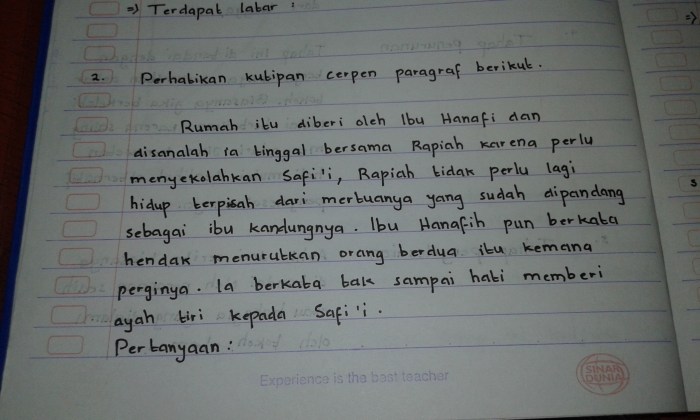 =) Terdapat latar :
=)
2. Perhatikan kutipan cerpen paragraf berikut.
Rumah itu diberi oleh Ibu Hanafi dan
disanalah ia tinggal bersama Rapiah karena perlu
menyekolahkan Safi'i, Rapiah tidak perlu lagi
hidup terpisah dari mertuanya yang sudah dipandang
sebagai ibu kandungnya. Ibu Hanafih pun berkata
hendak menurutkan orang berdua itu kemana
perginya. Ia berkata tak sampai hati memberi
ayah tiri kepada Safi'i.
Pertanyaan :
Experience is the best teacher
SINAR DUNIA